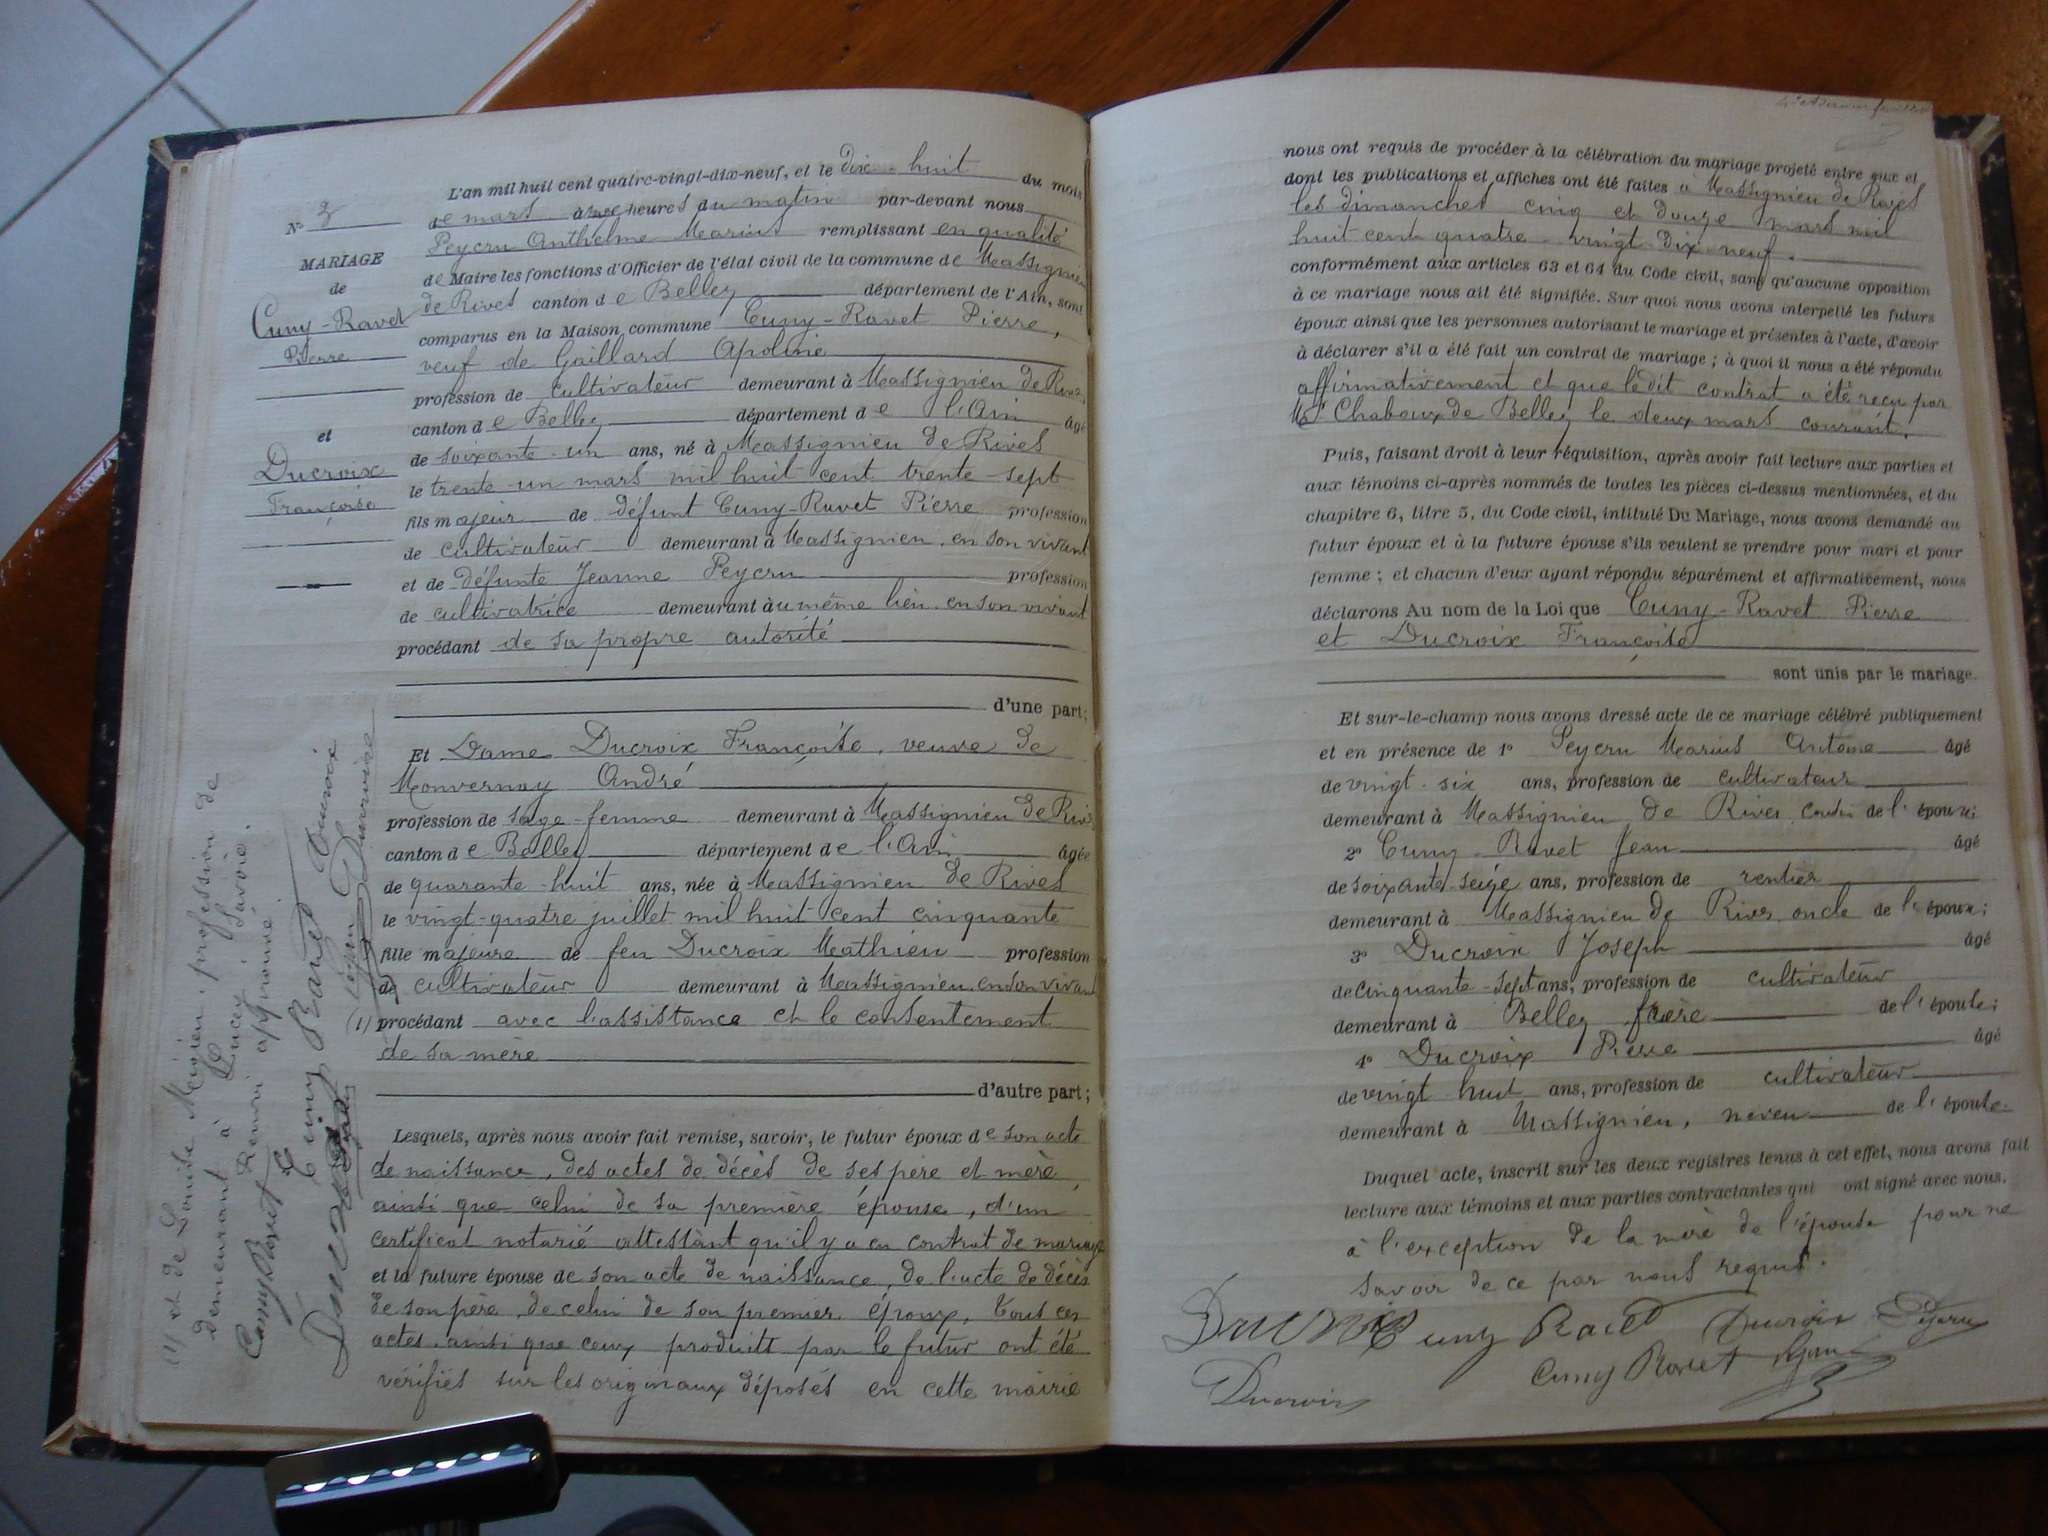 N° 3
MARIAGE
de
Cuny-Ravet
Pierre
et
Ducroix
Françoise
L'an mil huit cent quatre-vingt-dix-neuf, et le dix-huit du mois
de mars à heures du matin par-devant nous
Peycru Anthelme Marius remplissant en qualité
de Maire les fonctions d'Officier de l'état civil de la commune de Massignieu
de Rives canton de Belley département de l'Ain, sont
comparus en la Maison commune Cuny-Ravet Pierre,
veuf de Gaillard Apolinie
profession de cultivateur demeurant à Massignieu de Rives
canton de Belley département de l'Ain âgé
de soixante-un ans, né à Massignieu de Rives
le trente-un mars mil huit cent trente-sept
fils majeur de défunt Cuny-Ravet Pierre profession
de cultivateur demeurant à Massignieu en son vivant
et de défunte Jeanne Peycru profession
de cultivatrice demeurant au même lieu en son vivant
procédant de sa propre autorité
d'une part;
Et Dame Ducroix Françoise, veuve de
Monvernay André
profession de sage-femme demeurant à Massignieu de Rives
canton de Belley département de l'Ain âgée
de quarante-huit ans, née à Massignieu de Rives
le vingt-quatre juillet mil huit cent cinquante
fille majeure de feu Ducroix Mathieu profession
de cultivateur demeurant à Massignieu en son vivant
(1) procédant avec l'assistance et le consentement
de sa mère
d'autre part;
Lesquels, après nous avoir fait remise, savoir, le futur époux de son acte
de naissance, des actes de décès de ses père et mère,
ainsi que celui de sa première épouse, d'un
certificat notarié attestant qu'il y a eu contrat de mariage
et la future épouse de son acte de naissance, de l'acte de décès
de son père, de celui de son premier époux, tous ces
actes, ainsi que ceux produits par le futur ont été
vérifiés sur les originaux déposés en cette mairie
(1) et de Louise Mégieu, profession de
demeurant à Lucey, Savoie.
Renvoi approuvé.
Cuny Ravet
Cuny Ravet Ducroix
Ducroix
nous ont requis de procéder à la célébration du mariage projeté entre eux et
dont les publications et affiches ont été faites à Massignieu de Rives
les dimanches cinq et douze mars mil
huit cent quatre-vingt-dix-neuf.
conformément aux articles 63 et 64 du Code civil, sans qu'aucune opposition
à ce mariage nous ait été signifiée. Sur quoi nous avons interpellé les futurs
époux ainsi que les personnes autorisant le mariage et présentes à l'acte, d'avoir
à déclarer s'il a été fait un contrat de mariage; à quoi il nous a été répondu
affirmativement et que le dit contrat a été reçu par
Me Chaboux de Belley le deux mars courant.
Puis, faisant droit à leur réquisition, après avoir fait lecture aux parties et
aux témoins ci-après nommés de toutes les pièces ci-dessus mentionnées, et du
chapitre 6, titre 5, du Code civil, intitulé Du Mariage, nous avons demandé au
futur époux et à la future épouse s'ils veulent se prendre pour mari et pour
femme; et chacun d'eux ayant répondu séparément et affirmativement, nous
déclarons Au nom de la Loi que Cuny-Ravet Pierre
et Ducroix Françoise
sont unis par le mariage.
Et sur-le-champ nous avons dressé acte de ce mariage célébré publiquement
et en présence de 1° Peycru Marius Antoine âgé
de vingt-six ans, profession de cultivateur
demeurant à Massignieu de Rives cousin de l'époux;
2° Cuny-Ravet Jean âgé
de soixante-seize ans, profession de rentier
demeurant à Massignieu de Rives oncle de l'époux;
3° Ducroix Joseph âgé
de cinquante-sept ans, profession de cultivateur
demeurant à Belley frère de l'épouse;
4° Ducroix Pierre âgé
de vingt huit ans, profession de cultivateur
demeurant à Massignieu, neveu de l'épouse.
Duquel acte, inscrit sur les deux registres tenus à cet effet, nous avons fait
lecture aux témoins et aux parties contractantes qui ont signé avec nous.
à l'exception de la mère de l'épouse pour ne
savoir de ce par nous requis.
Ducroix Cuny Ravet Ducroix Peycru
Ducroix Cuny Ravet